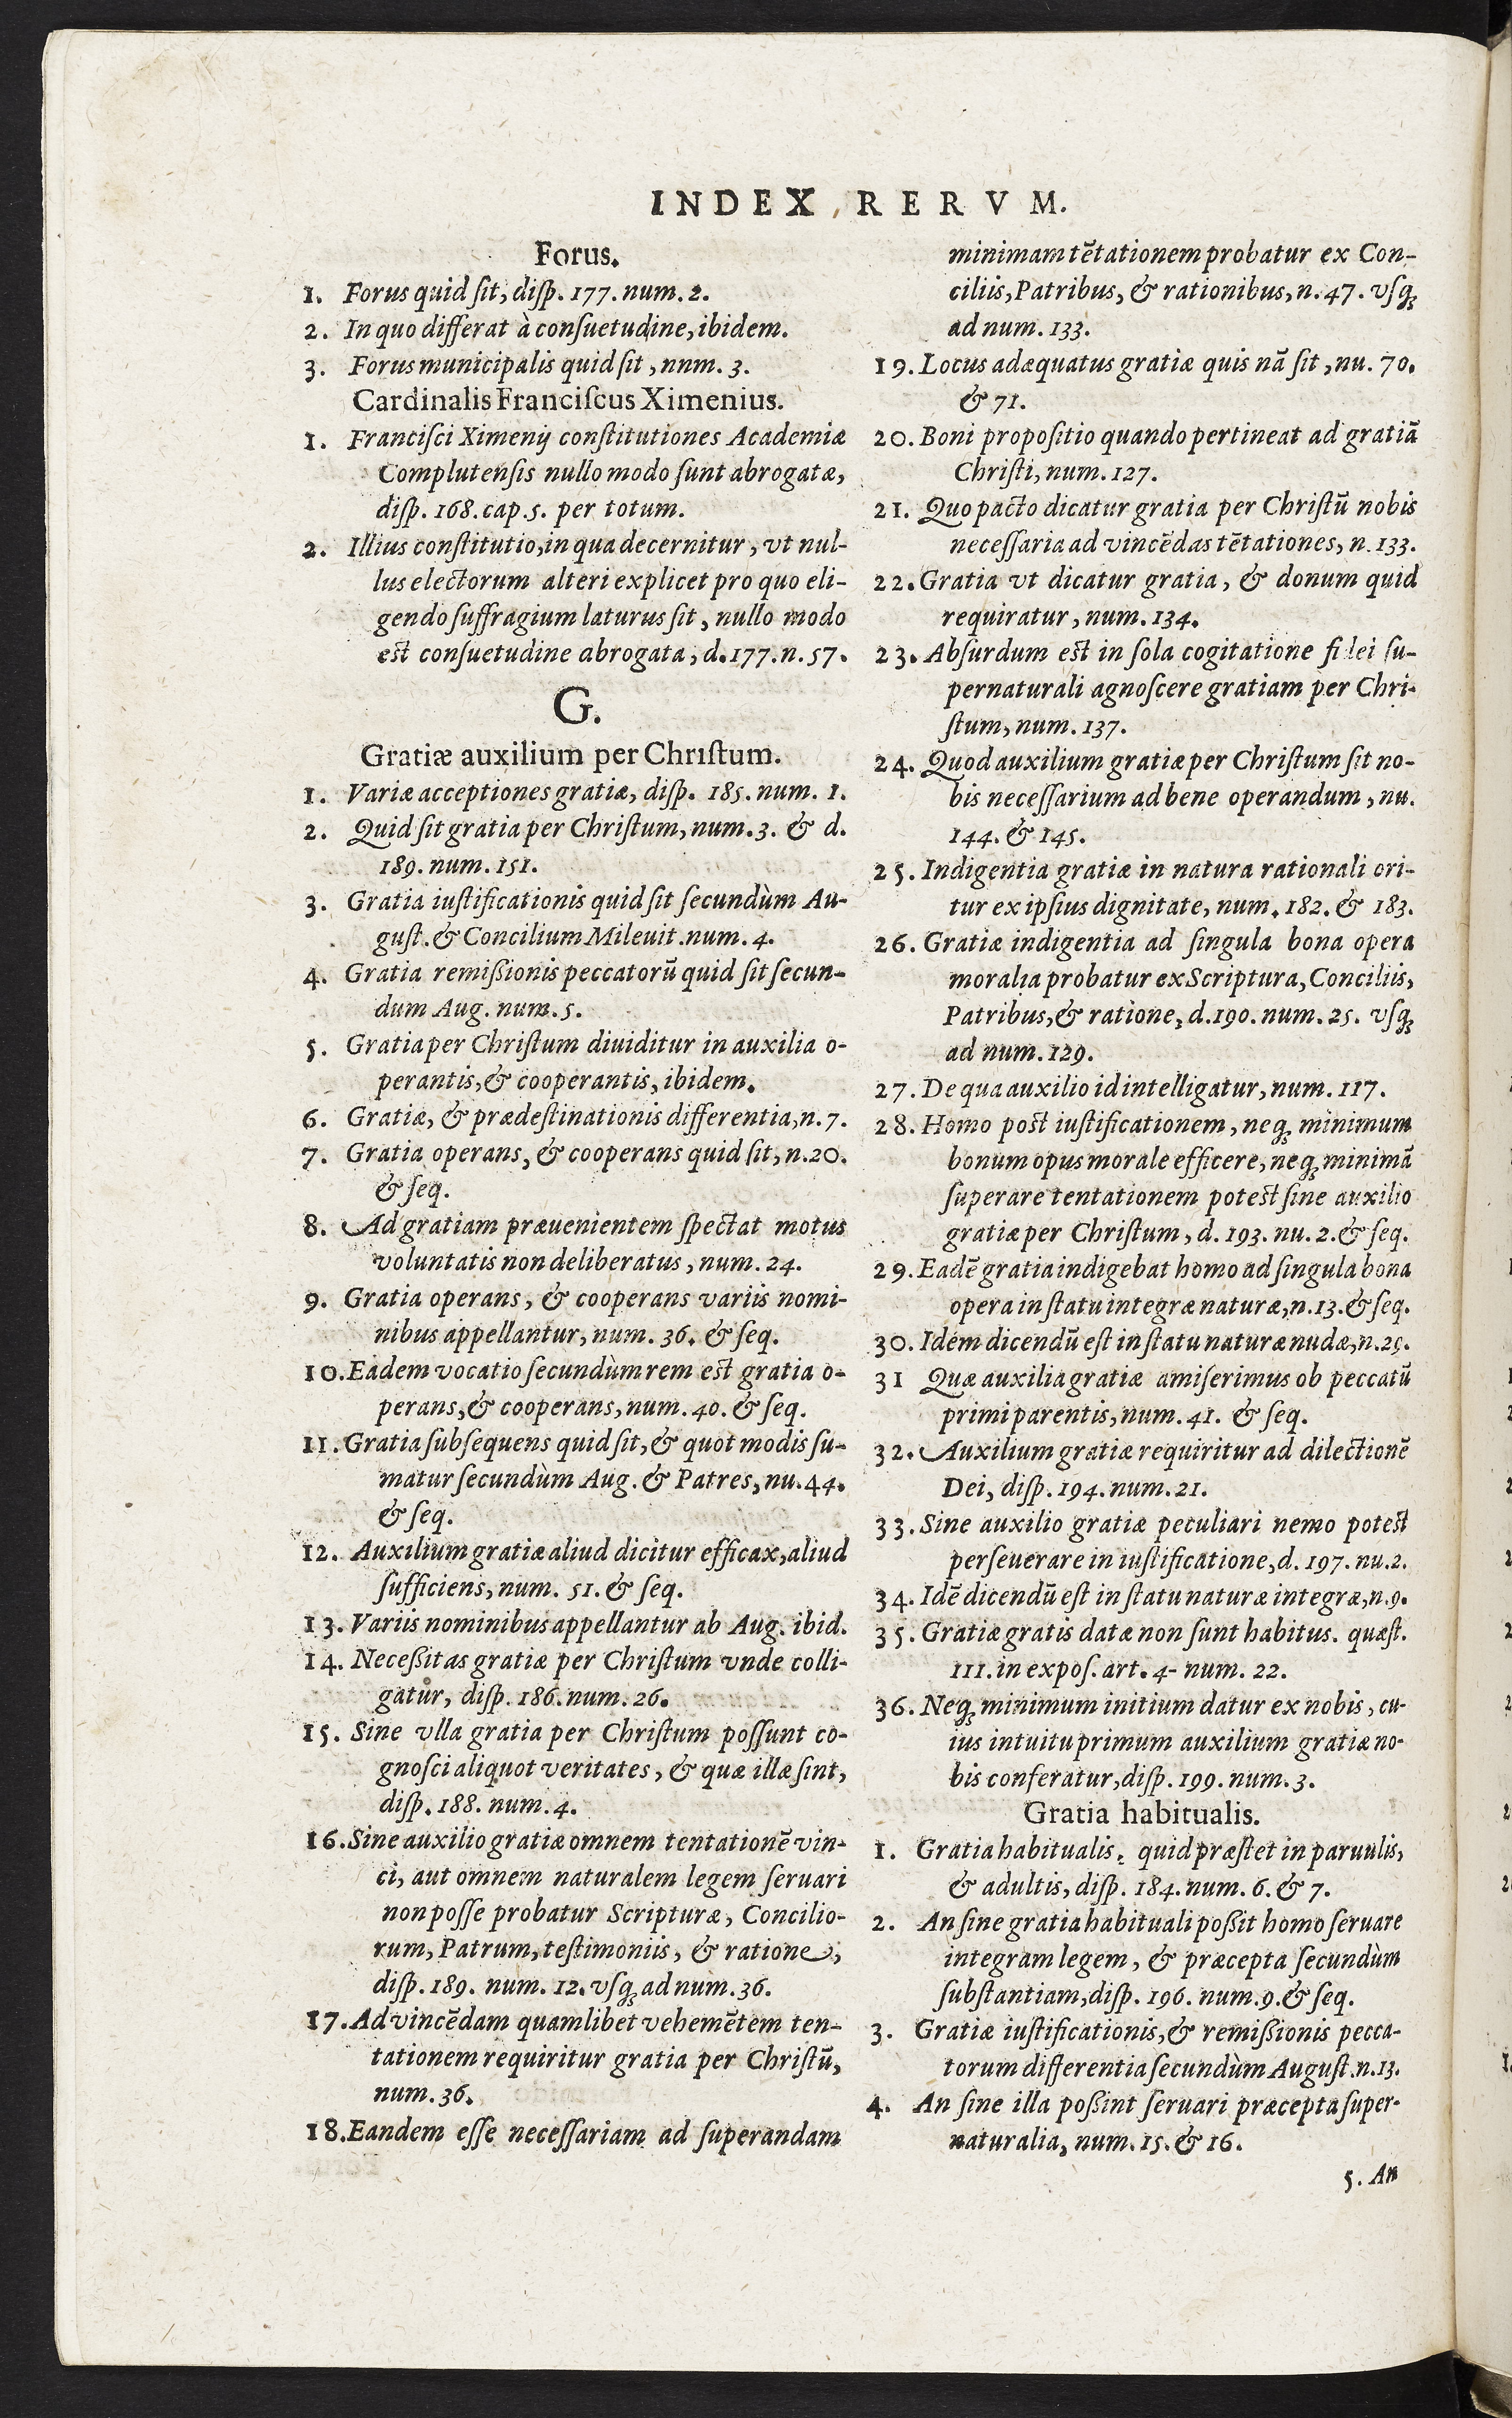 INDEX RERVM.
Forus.
1. Forus quid ſit, diſp. 177. num. 2.
2. In quo differat à conſuetudine, ibidem.
3. Forus municipalis quid ſit, nnm. 3.
Cardinalis Franciſcus Ximenius.
1. Franciſci Ximenij conſtitutiones Academiæ
Complutenſis nullo modo ſunt abrogatæ,
diſp. 168. cap. 5. per totum.
2. Illius conſtitutio, in qua decernitur, vt nul-
lus electorum alteri explicet pro quo eli-
gendo ſuffragium laturus ſit, nullo modo
eſt conſuetudine abrogata, d. 177. n. 57.
G.
Gratiæ auxilium per Chriſtum.
1. Variæ acceptiones gratiæ, diſp. 185. num. 1.
2. Quid ſit gratia per Chriſtum, num. 3. & d.
189. num. 151.
3. Gratia iuſtificationis quid ſit ſecundùm Au-
guſt. & Concilium Mileuit. num. 4.
4. Gratia remißionis peccatorũ quid ſit ſecun-
dum Aug. num. 5.
5. Gratia per Chriſtum diuiditur in auxilia o-
perantis, & cooperantis, ibidem.
6. Gratiæ, & prædeſtinationis differentia, n. 7.
7. Gratia operans, & cooperans quid ſit, n. 20.
& ſeq.
8. Ad gratiam præuenientem ſpectat motus
voluntatis non deliberatus, num. 24.
9. Gratia operans, & cooperans variis nomi-
nibus appellantur, num. 36. & ſeq.
10. Eadem vocatio ſecundùm rem eſt gratia o-
perans, & cooperans, num. 40. & ſeq.
11. Gratia ſubſequens quid ſit, & quot modis ſu-
matur ſecundùm Aug. & Patres, nu. 44.
& ſeq.
12. Auxilium gratiæ aliud dicitur efficax, aliud
ſufficiens, num. 51. & ſeq.
13. Variis nominibus appellantur ab Aug. ibid.
14. Neceßitas gratiæ per Chriſtum vnde colli-
gatur, diſp. 186. num. 26.
15. Sine vlla gratia per Chriſtum poſſunt co-
gnoſci aliquot veritates, & quæ illæ ſint,
diſp. 188. num. 4.
16. Sine auxilio gratiæ omnem tentationẽ vin-
ci, aut omnem naturalem legem ſeruari
non poſſe probatur Scripturæ, Concilio-
rum, Patrum, teſtimoniis, & ratione,
diſp. 189. num. 12. vſq; ad num. 36.
17. Ad vincẽdam quamlibet vehemẽtem ten-
tationem requiritur gratia per Chriſtũ,
num. 36.
18. Eandem eſſe neceſſariam ad ſuperandam
minimam tẽtationem probatur ex Con-
ciliis, Patribus, & rationibus, n. 47. vſq;
ad num. 133.
19. Locus adæquatus gratiæ quis nã ſit, nu. 70.
& 71.
20. Boni propoſitio quando pertineat ad gratiã
Chriſti, num. 127.
21. Quo pacto dicatur gratia per Chriſtũ nobis
neceſſaria ad vincẽdas tẽtationes, n. 133.
22. Gratia vt dicatur gratia, & donum quid
requiratur, num. 134.
23. Abſurdum eſt in ſola cogitatione fidei ſu-
pernaturali agnoſcere gratiam per Chri-
ſtum, num. 137.
24. Quod auxilium gratiæ per Chriſtum ſit no-
bis neceſſarium ad bene operandum, nu.
144. & 145.
25. Indigentia gratiæ in natura rationali ori-
tur ex ipſius dignitate, num. 182. & 183.
26. Gratiæ indigentia ad ſingula bona opera
moralia probatur ex Scriptura, Conciliis,
Patribus, & ratione, d. 190. num. 25. vſq;
ad num. 129.
27. De qua auxilio id intelligatur, num. 117.
28. Homo poſt iuſtificationem, neq; minimum
bonum opus morale efficere, neq; minimã
ſuperare tentationem poteſt ſine auxilio
gratiæ per Chriſtum, d. 193. nu. 2. & ſeq.
29. Eadẽ gratia indigebat homo ad ſingula bona
opera in ſtatu integræ naturæ, n. 13. & ſeq.
30. Idem dicendũ eſt in ſtatu naturæ nudæ, n. 29.
31 Quæ auxilia gratiæ amiſerimus ob peccatũ
primi parentis, num. 41. & ſeq.
32. Auxilium gratiæ requiritur ad dilectionẽ
Dei, diſp. 194. num. 21.
33. Sine auxilio gratiæ peculiari nemo poteſt
perſeuerare in iuſtificatione, d. 197. nu. 2.
34. Idẽ dicendũ eſt in ſtatu naturæ integræ, n. 9.
35. Gratiæ gratis datæ non ſunt habitus. quæſt.
111. in expoſ. art. 4- num. 22.
36. Neq; minimum initium datur ex nobis, cu-
ius intuitu primum auxilium gratiæ no-
bis conferatur, diſp. 199. num. 3.
Gratia habitualis.
1. Gratia habitualis, quid præſtet in paruulis,
& adultis, diſp. 184. num. 6. & 7.
2. An ſine gratia habituali poßit homo ſeruare
integram legem, & præcepta ſecundùm
ſubſtantiam, diſp. 196. num. 9. & ſeq.
3. Gratiæ iuſtificationis, & remißionis pecca-
torum differentia ſecundùm Auguſt. n. 13.
4. An ſine illa poßint ſeruari præcepta ſuper-
naturalia, num. 15. & 16.
5. An